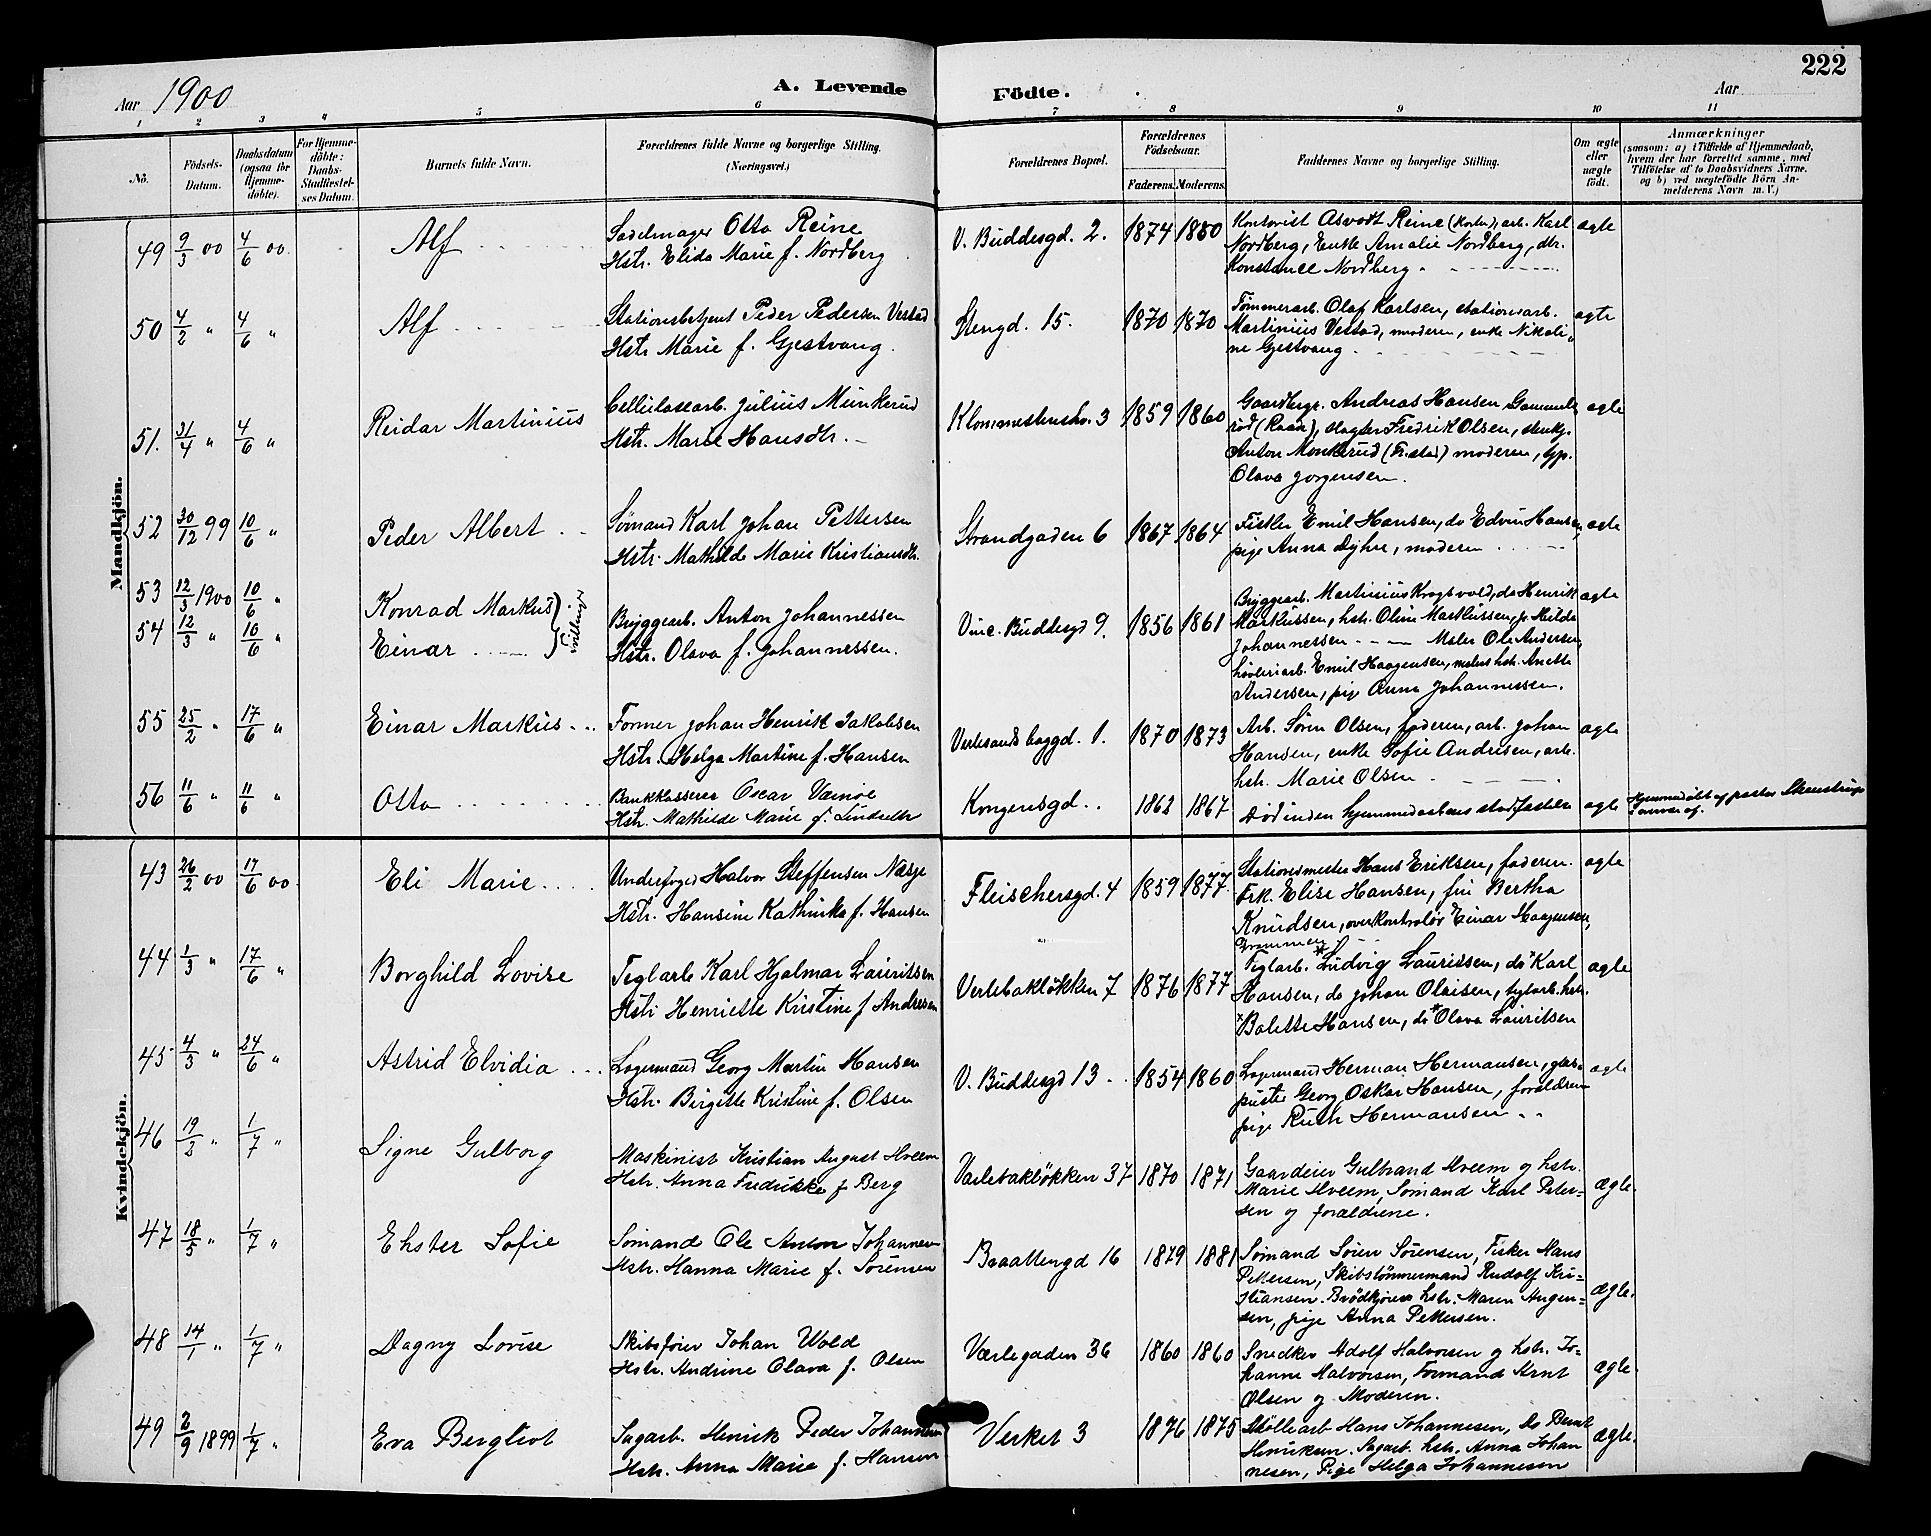 222
Aar 1900
A. Levende Födte.
Aar
1 2 3 4 5 6 7 8 9 10 11
No.
Födsels-Datum.
Daabsdatum (ogsaa for Hjemme-döbte).
For Hjemme-döbte: Daabs-Stadfæstel-ses Datum.
Barnets fulde Navn.
Forældrenes fulde Navne og borgerlige Stilling. (Næringsvei.)
Forældrenes Bopæl.
Forældrenes Födselsaar.
Faderens. Moderens.
Faddernes Navne og borgerlige Stilling.
Om ægte eller uægte født.
Anmærkninger
(saasom: a) i Tilfælde af Hjemmedaab, hvem der har forrettet samme, med Tilføielse af to Daabsvidners Navne, og b) ved uægtefödte Börn An-melderens Navn m. V.)
Mandkjön.
49 9/3 00 4/6 00. Alf
Sadelmager Otto Reine
Hstr. Elida Marie f. Nordberg
V. Buddesgd. 2. 1874 1880
Kontorist Asvodt Reine, arb. Karl
Nordberg, Enke Amalie Nordberg, dtr.
Konstance Nordberg.
ægte
50 4/2 " 4/6 " Alf
Stationsbetjent Peder Pedersen Vestad
Hstr. Marie f. Gjestvang.
Stengd. 15. 1870 1870
Tømmerarb. Olaf Karlsen, stationsarb.
Martinius Vestad, moderen, enke Nikoli-
ne Gjestvang
ægte
51. 31/4 " 4/6 " Reidar Martinius
Cellulosearb. Julius Munkerud
Hstr. Marie Hansdtr.
3 1859 1860
Gaardbrgr. Andreas Hansen Gammel-
rød (Raade), slagter Fredrik Olsen,
Anton Monkerud (Fr.stad) moderen,
Olava Jørgensen.
ægte
52 30/12 99 10/6 " Peder Albert
Sømand Karl Johan Pettersen
Hstr. Mathilde Marie Kristiansdtr.
Strandgaden 6 1867 1864
Fisker Emil Hansen, do Edvin Hansen,
pige Anna Dyhre, moderen
ægte
53 12/3 1900 10/6 " Konrad Markus
54 12/3 " 10/6 " Einar
Tvillinger
Bryggearb. Anton Johannessen
Hstr. Olava f. Johannessen.
Vinc. Buddesgd 9. 1856 1861
Bryggearb. Martinius Krogsvold, do Henrik
Markussen, hstr. Oline Markussen, p. Hilda
Johannessen — Maler Ole Andersen,
høvleriarb. Emil Haagensen, malers hstr. Anette
Andersen, pige Anna Johannessen.
ægte
55 25/2 " 17/6 " Einar Markus
Former Johan Henrik Jakobsen
Hstr. Helga Martine f. Hansen
Verlesands baggd. 1. 1870 1873
Arb. Søren Olsen, faderen, arb. Johan
Hansen, enke Sofie Andresen, arb.
hstr. Marie Olsen
ægte
56 11/6 " 11/6 " Otto
Bankkasserer Oscar Værnøe
Hstr. Mathilde Marie f. Lindseth
Kongensgd. 1862 1867
Død inden hjemmedaabens stadfæstelse
ægte
Hjemmedøbt af pastor
Kvindekjön.
43 26/2 00 17/6 00. Eli Marie
Underfoged Halvor Steffensen Næsje
Hstr. Hansine Kathinka f. Hansen
Fleischersgd. 4 1859 1877.
Stationsmester Hans Eriksen, faderen.
Frk. Elise Hansen, fru Bertha
Knudsen, overkontrolør Einar Haagensen,
Drammen
ægte
44 1/3 " 17/6 " Borghild Lovise
Teglarb Karl Hjalmar Lauritsen
Hstr Henriette Kristine f Andresen
Verlebakløkken 7 1876 1877
Teglarb. Ludvig Lauritsen, do Karl
Hansen, do Johan Olaisen, teglarb. hstr.
Bolette Hansen, do Olava Lauritsen
ægte
45 4/3 " 24/6 " Astrid Elvidia
Lagermand Georg Martin Hansen
Hstr. Birgitte Kristine f. Olsen
V. Buddesgd 13 1854 1860
Lagermand Herman Hermansen, glas-
puster Georg Oskar Hansen, forældrene
pige Ruth Hermansen
ægte
46 19/2 " 1/7 " Signe Gulborg
Maskinist Kristian August Hveem
Hstr. Anna Fredrikke f Berg
Værlebakløkken 37 1870 1871
Gaardeier Gulbrand Hveem og hstr.
Marie Hveem, Sømand Karl Peter-
sen og forældrene.
ægte.
47 18/5 " 1/7 " Ehster Sofie
Sømand Ole Anton Johannesen
Hstr. Hanna Marie f. Sörensen
Baattengd 16 1879 1881
Sømand Sören Sörensen, Fisker Hans
Pettersen, Skibstömmermand Rudolf Kri-
stiansen. Brødkjører hstr. Maren Augen-
sen, pige Anna Pettersen.
ægte.
48 14/1 " 1/7 " Dagny Lovise
Skibsfører Johan Wold
Hstr. Andrine Olava f. Olsen
Værlegaden 36 1860 1860
Snedker Adolf Halvorsen og hstr. Jo-
hanne Halvorsen, Formand Arnt
Olsen og Moderen.
ægte
49 2/9 1899 1/7 " Eva Bergliot
Sagarb. Henrik Peder Johannesen
Hstr. Anna Marie f. Hansen
Verket 3 1876 1875
Møllearb Hans Johannesen, do Bernt
Henriksen. Sagarb. hstr. Anna Johan
nesen, Pige Helga Johannesen
ægte.